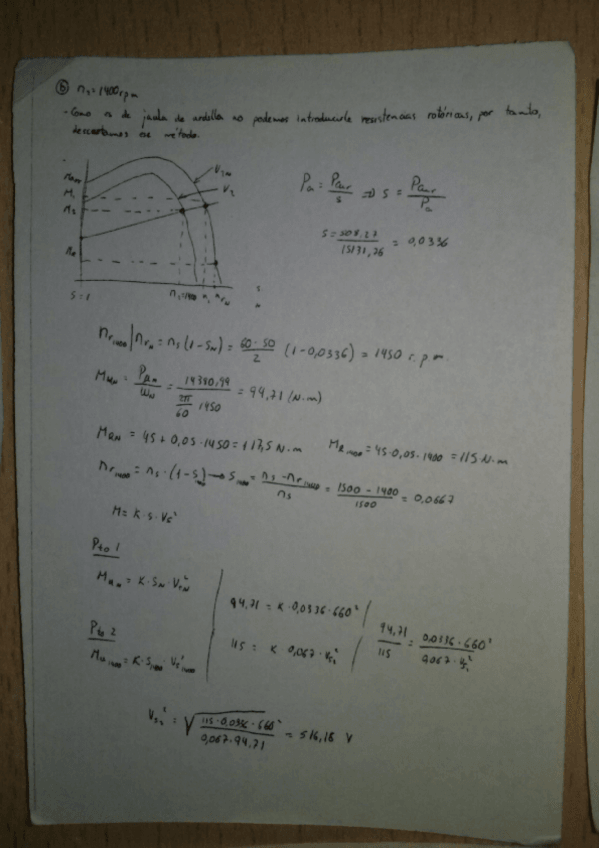 b) n₂ = 1400 rpm
- Como es de jaula de ardilla no podemos introducirle resistencias rotóricas, por tanto,
descartamos ese método.
V₂
M₁
M₂
S=1 n₂=1400 n₁
Pa = Pcur/s ⇒ s = Pcur/Pa
s = 508,27/15131,26 = 0,0336
nr1400 | nrN = ns (1-SN) = 60·50/2 (1-0,0336) = 1450 r.p.m
MuN = Pun/ωN = 14380,99/(2π/60 1450) = 94,71 (N·m)
MRN = 45 + 0,05·1450 = 117,5 N·m MR1400 = 45·0,05·1400 = 115 N·m
nr1400 = ns·(1-S) → S1400 = (ns - nr1400)/ns = (1500 - 1400)/1500 = 0,0667
M = K·S·Vs²
Pto 1
MuN = K·SN·VsN²
94,71 = K·0,0336·660²
Pto 2
Mu1400 = K·S1400·Vs1400²
115 = K 0,067·Vs₂²
94,71/115 = 0,0336·660²/0,067·Vs₂²
Vs₂² = √(115·0,0336·660²/0,067·94,71) = 516,18 V